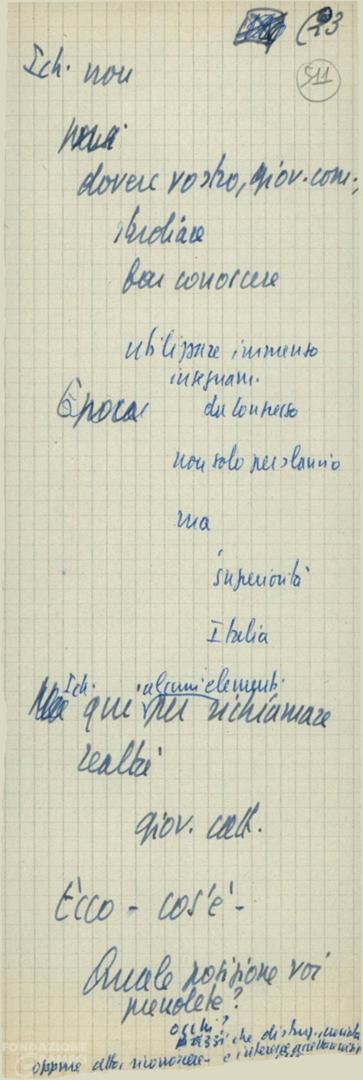 23
511
Ich. non
dovere vostro, giov. com.,
studiare
ben conoscere
utilizzare immenso
insegnam.
Epoca del Congresso
non solo per slancio
ma
superiorità
Italia
Ich. alcuni elementi
qui per richiamare
realtà
giov. catt.
Ecco - cos'è -
Quale posizione voi
prendete?
occhi?
che
oppure altri riconoscere - e
FONDAZIONE